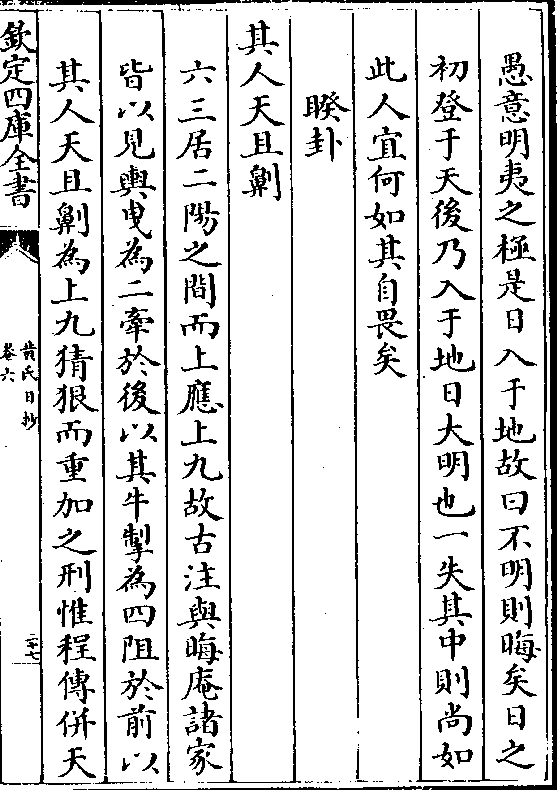 愚意明夷之極是日入于地故曰不明則晦矣日之
初登于天後乃入于地日大明也一失其中則尚如
此人宜何如其自畏矣
睽卦
其人天且劓
六三居二陽之間而上應上九故古注與晦庵諸家
皆以見輿曳為二牽於後以其牛掣為四阻於前以
其人天且劓為上九猜狠而重加之刑惟程傳併天
欽定四庫全書
黄氏日抄
卷六
二十七